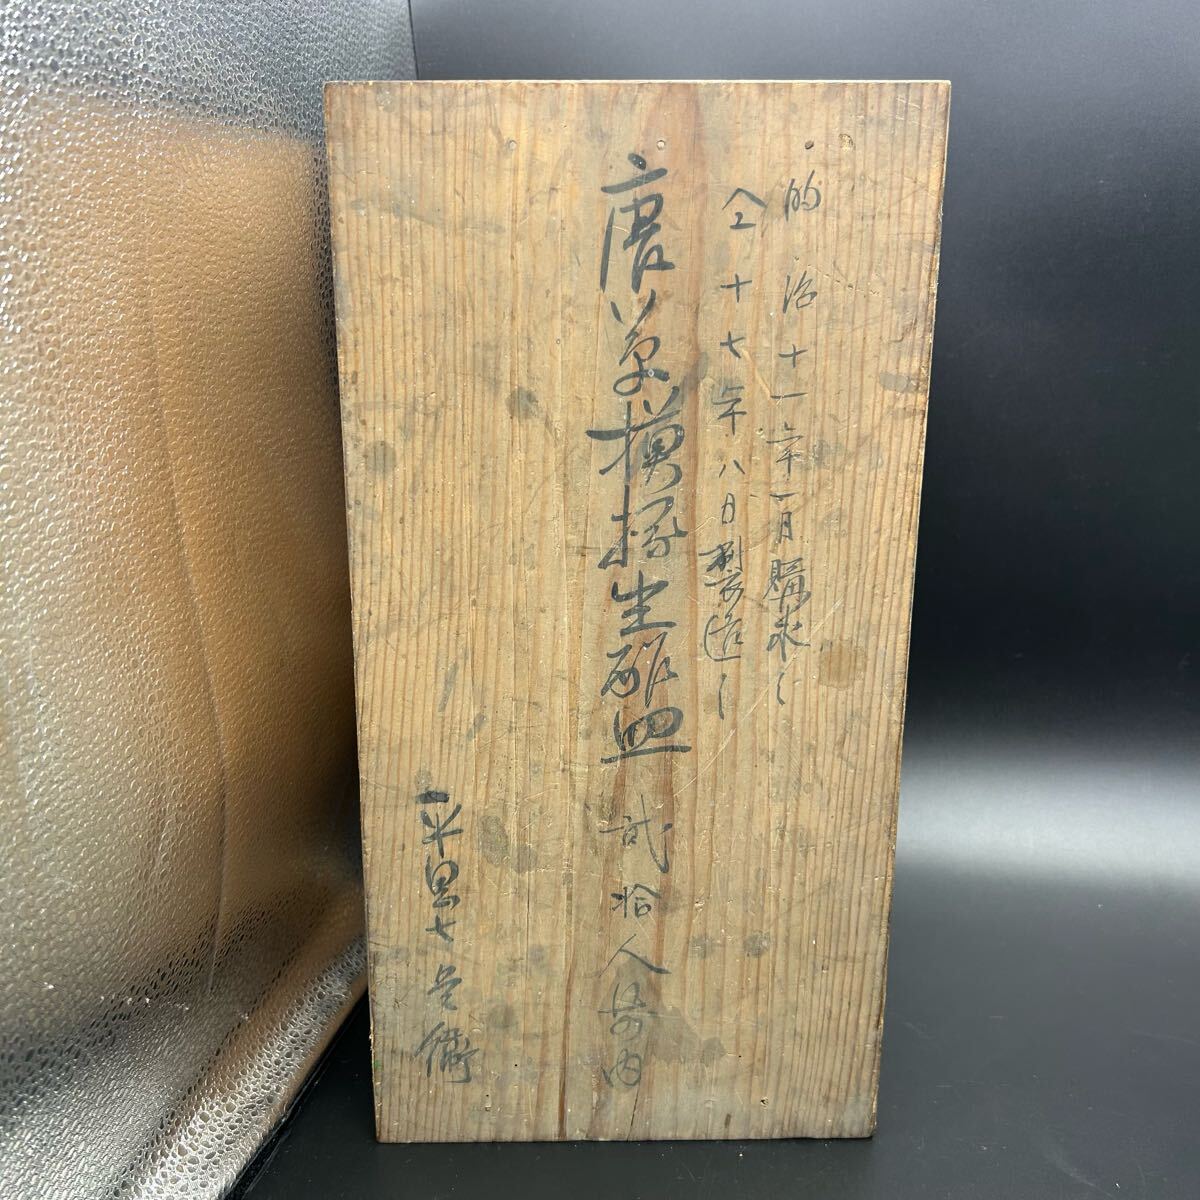 明治十一年一月購求シ
仝十七年八月製造シ
唐草模様生酢皿 貳拾人前内
平黒七兵衛